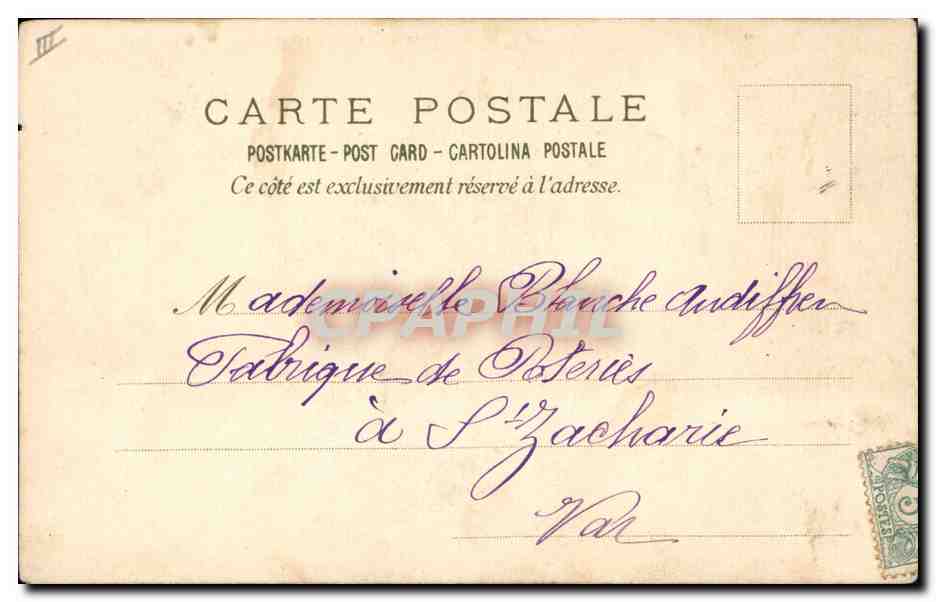 III
CARTE POSTALE
POSTKARTE - POST CARD - CARTOLINA POSTALE
Ce côté est exclusivement réservé à l'adresse.
Mademoiselle Blanche Audiffren
CPAPHIL
Fabrique de Poteries
à St Zacharie
Var
POSTES